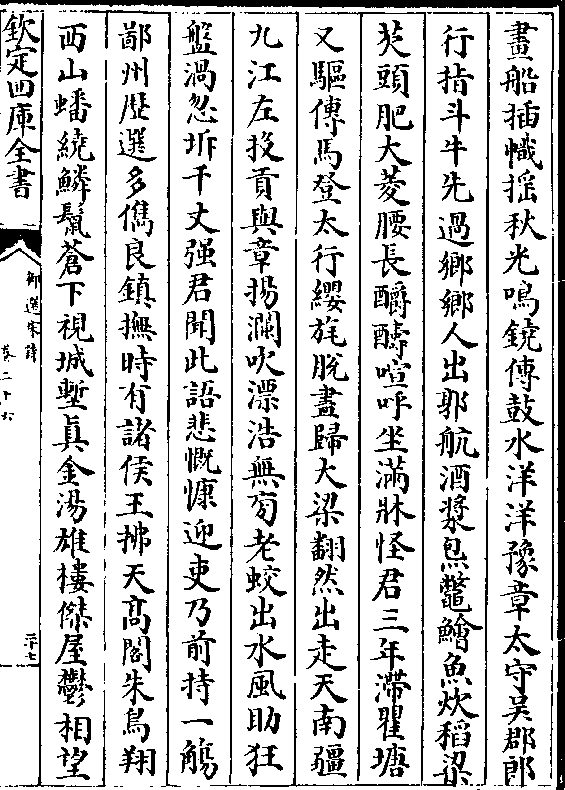 畫船插幟搖秋光鳴鐃傳鼓水洋洋豫章太守吳郡郎
行指斗牛先過鄉鄉人出郭航酒漿炰鼈鱠魚炊稻粱
芡頭肥大菱腰長釂醻喧呼坐滿牀怪君三年滯瞿塘
又驅傳馬登太行纓旄脫盡歸大梁翻然出走天南疆
九江左投貢與章揚瀾吹漂浩無旁老蛟出水風助狂
盤渦忽坼千丈强君聞此語悲慨慷迎吏乃前持一觴
鄙州歷選多儁良鎮撫時有諸侯王拂天髙閣朱鳥翔
西山蟠繞鱗鬛蒼下視城塹眞金湯雄樓傑屋鬱相望
欽定四庫全書
御選宋詩
卷二十六
二十七